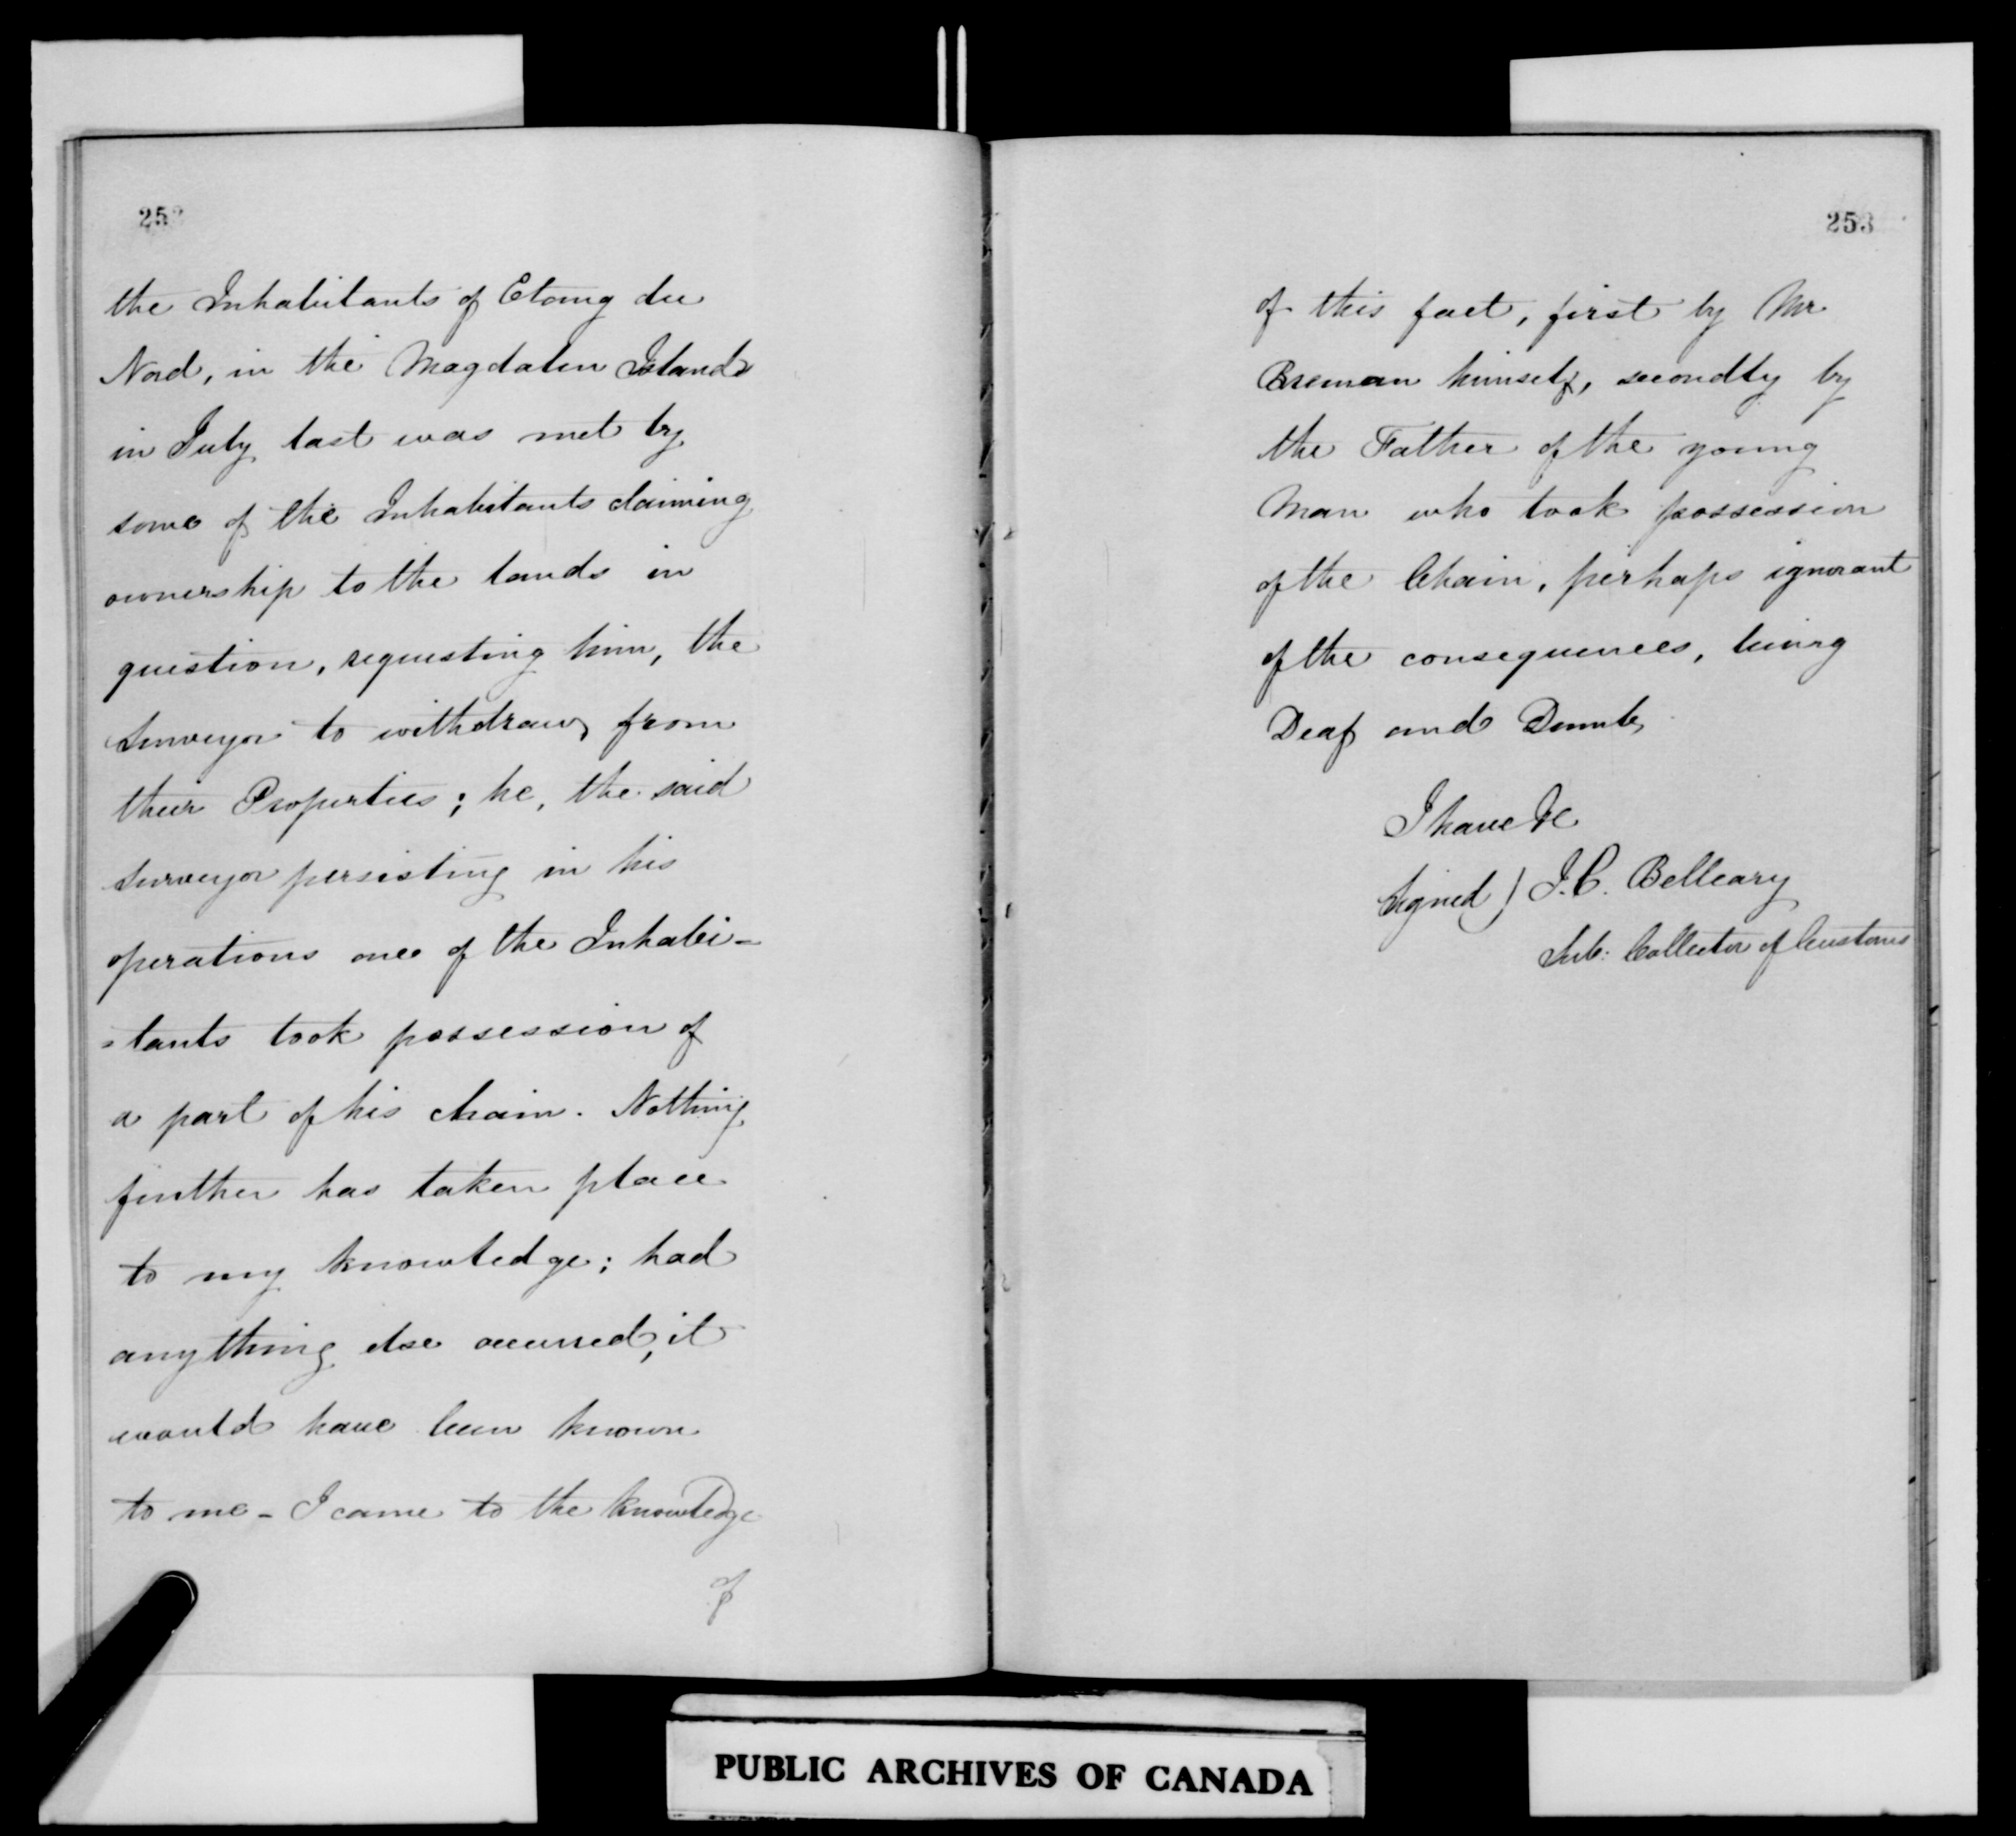 252
the Inhabitants of Etang du
Nord, in the Magdalen Islands
in July last was met by
some of the Inhabitants claiming
ownership to the lands in
question, requesting him, the
Surveyor to withdraw from
their Properties; he, the said
Surveyor persisting in his
operations one of the Inhabi-
-tants took possession of
a part of his chain. Nothing
further has taken place
to my knowledge; had
anything else occurred, it
would have been known
to me - I came to the knowledge
of
253
of this fact, first by Mr
himself, secondly by
the Father of the young
Man who took possession
of the Chain, perhaps ignorant
of the consequences, being
Deaf and Dumb
I have &c
Signed) J.C. Belleary
Sub: Collector of Customs
PUBLIC ARCHIVES OF CANADA